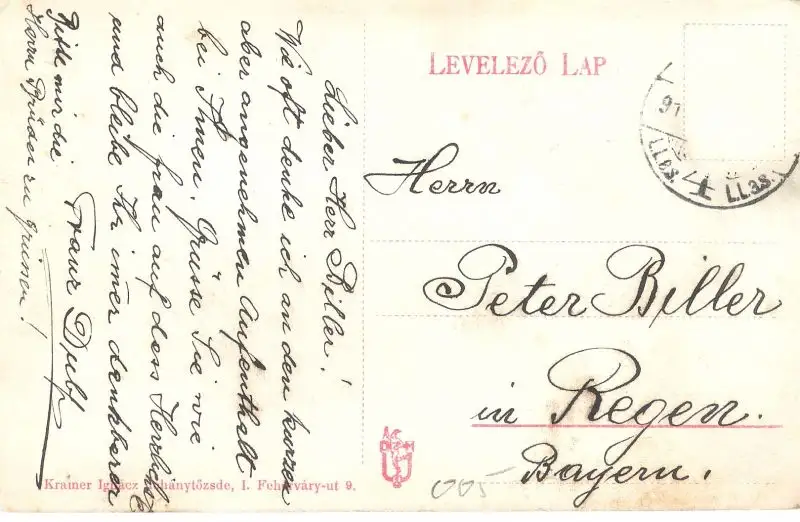 Lieber Herr Biller!
Wie oft denke ich an den kurzen
aber angenehmen Aufenthalt
bei Ihnen. Grüsse Sie wie
auch die Frau auf dess Herzlichste
und bleibe Ihr imer dankbarer
Franz
Bitte mir die
Herrn Brüder zu grüssen!
LEVELEZŐ LAP
Herrn
Peter Biller
in Regen.
Bayern.
005
Krainer Ignácz I. Fehérváry-ut 9.